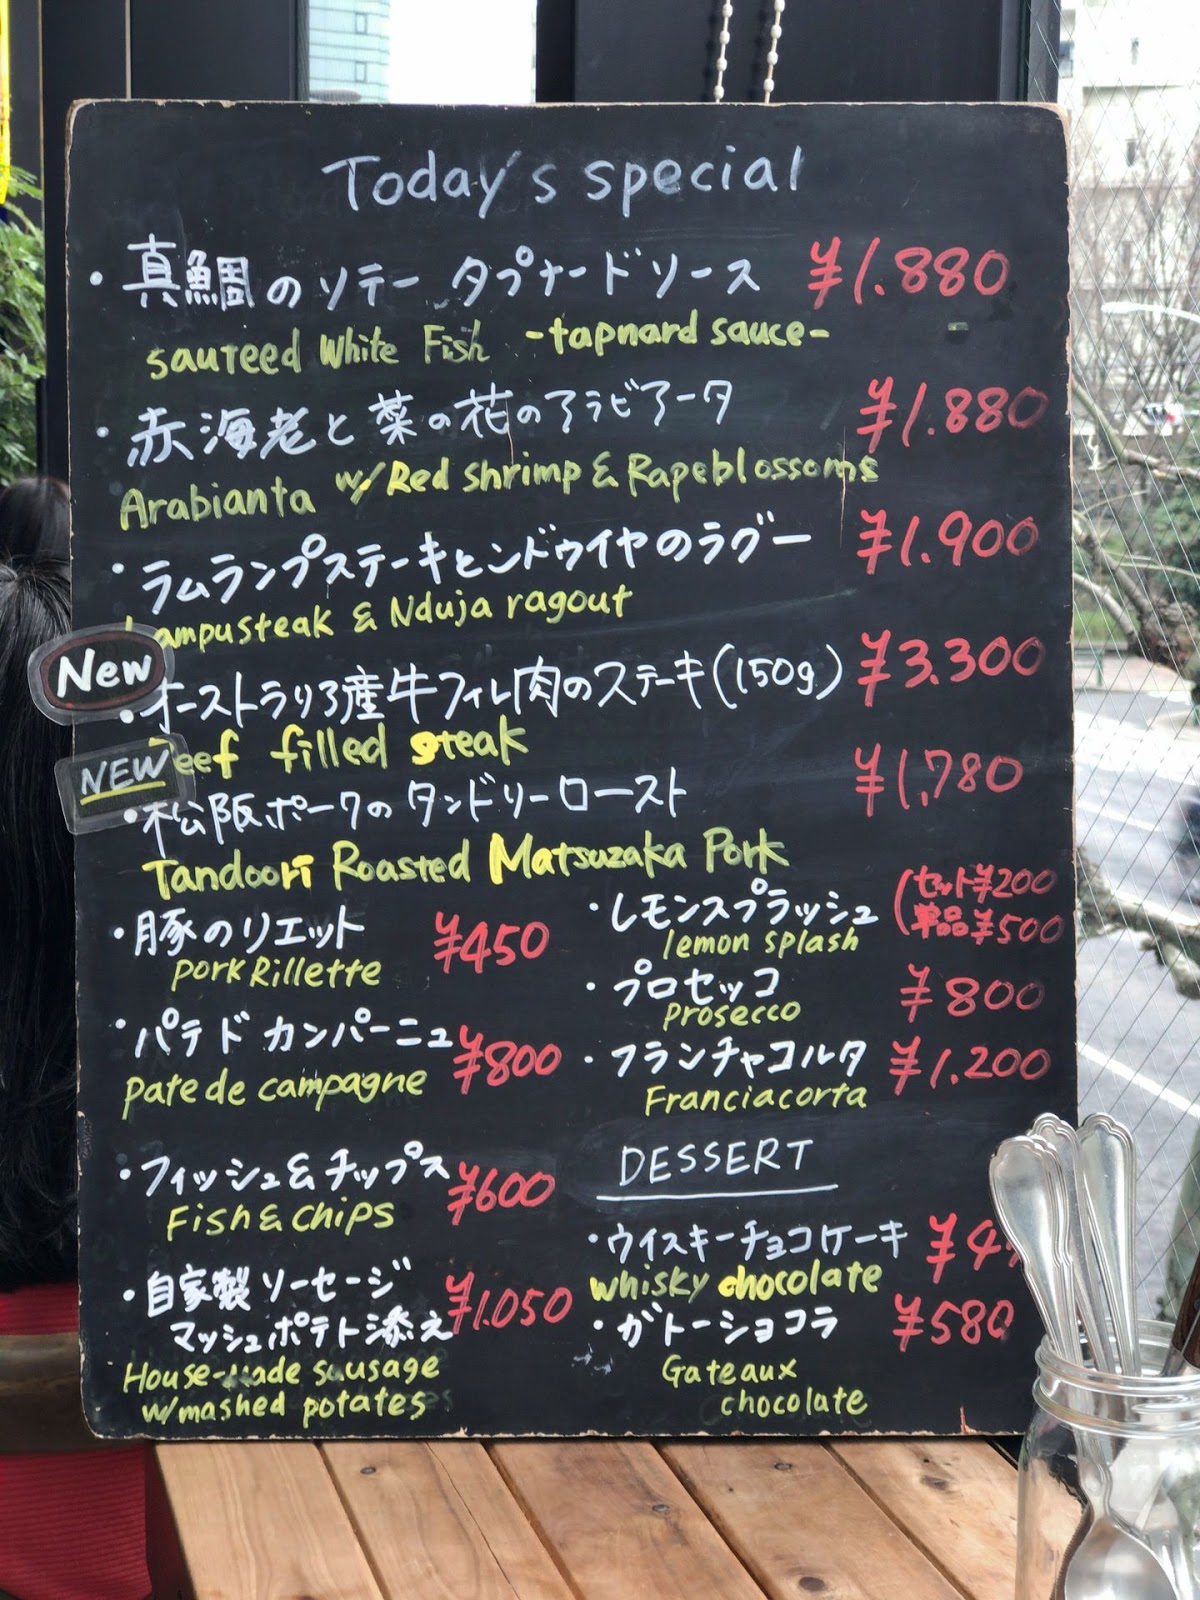 Today's special
・真鯛のソテー タプナードソース ¥1.880
sauteed White Fish -tapnard sauce-
・赤海老と菜の花のアラビアータ ¥1.880
Arabianta w/Red shrimp & Rapeblossoms
・ラムランプステーキとンドゥイヤのラグー ¥1.900
Lampusteak & Nduja ragout
New
・オーストラリア産牛フィレ肉のステーキ(150g) ¥3.300
Beef filled steak
NEW
・松阪ポークのタンドリーロースト ¥1,780
Tandoori Roasted Matsuzaka Pork
・豚のリエット ¥450
pork Rillette
・パテド カンパーニュ ¥800
pate de campagne
・フィッシュ&チップス ¥600
Fish & chips
・自家製ソーセージ
マッシュポテト添え ¥1.050
House-made sausage
w/mashed potates
・レモンスプラッシュ (セット¥200
単品¥500
lemon splash
・プロセッコ ¥800
Prosecco
・フランチャコルタ ¥1.200
Franciacorta
DESSERT
・ウイスキーチョコケーキ ¥4
whisky chocolate
・ガトーショコラ ¥580
Gateaux
chocolate